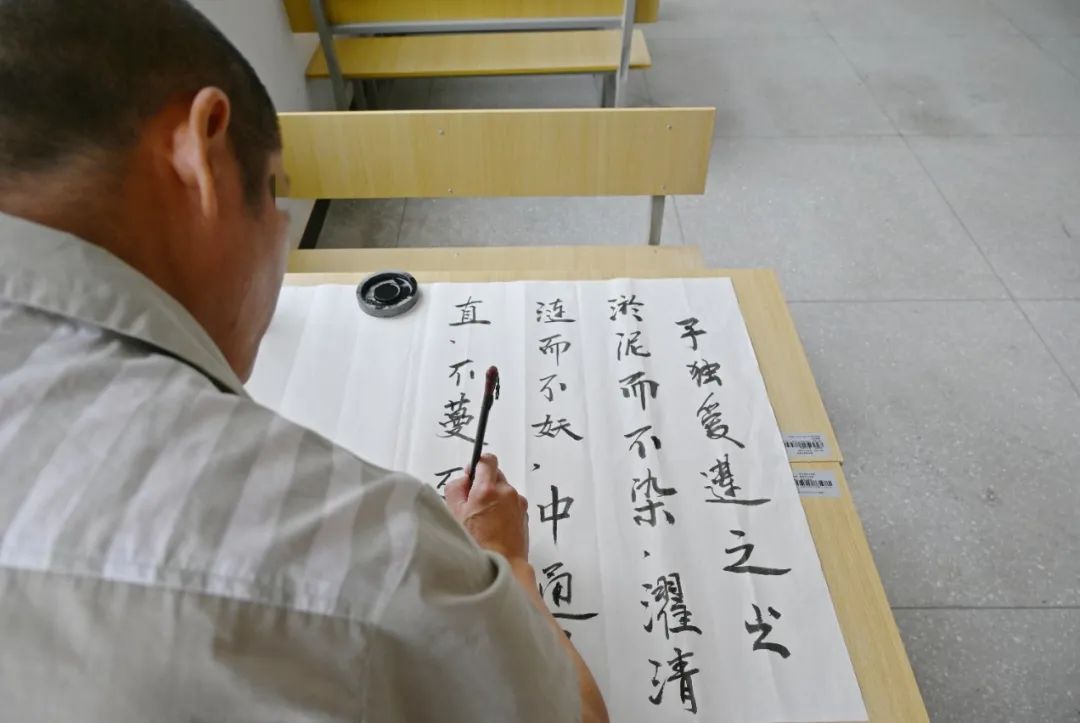 予独爱莲之出
淤泥而不染，濯清
涟而不妖，中通
直，不蔓不